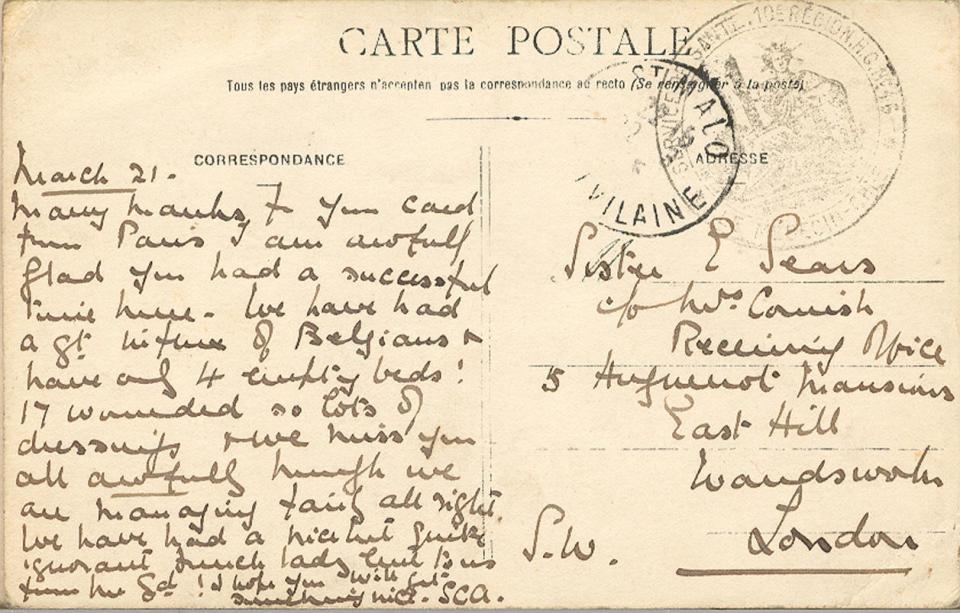 CARTE POSTALE
Tous les pays étrangers n'accepten pas la correspondance au recto (Se renseigner à la poste)
CORRESPONDANCE
March 21.
Many thanks for your card
from Paris I am awfully
glad you had a successful
time here. We have had
a gt influx of Belgians &
have only 4 empty beds!
17 wounded so lots of
dressings & we miss you
all awfully though we
are managing fairly all right.
We have had a nice but quite
ignorant French lady sent to us
from the Gd! I hope you will get
something nice. SCA.
ADRESSE
Sister E Sears
c/o Mrs Cornish
Receiving Office
5 Huguenot Mansions
East Hill
Wandsworth
London
S.W.
ST MALO
VILAINE
SANTÉ 10e RÉGION
SERVICE